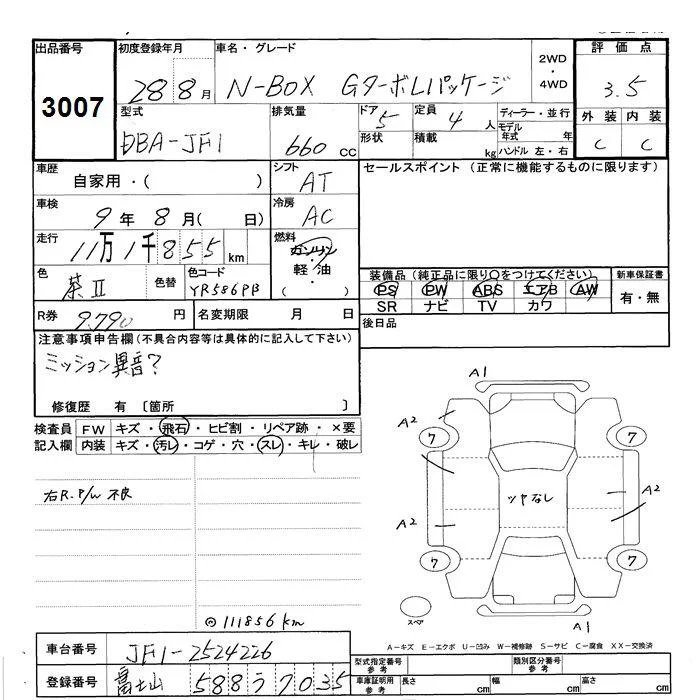 出品番号
3007
初度登録年月
28 8月
車名・グレード
N-BOX GターボLパッケージ
2WD
・
4WD
評価点
3.5
外装 内装
C C
型式
DBA-JF1
排気量
660 cc
ドア 5
形状
定員 4 人
積載 kg
ディーラー・並行
モデル
年式 年
ハンドル 左・右
車歴
自家用・( )
シフト
AT
車検
9年 8月( 日)
冷房
AC
走行
11万1千855km
燃料
ガソリン
・
軽油
( )
色
茶II
色替
色コード
YR586PB
R券
9.790 円
名変期限 月 日
セールスポイント (正常に機能するものに限ります)
装備品(純正品に限り○をつけてください)
PS PW ABS エアB AW
SR ナビ TV カワ
新車保証書
有・無
後日品
注意事項申告欄(不具合内容等は具体的に記入して下さい)
ミッション異音?
修復歴 有 〔箇所 〕
検査員
記入欄
FW キズ・飛石・ヒビ割・リペア跡・×要
内装 キズ・汚レ・コゲ・穴・スレ・キレ・破レ
右R.P/W 不良
111856km
A1
A2
7
7
A2
A2
ツヤなし
7
7
スペア
A1
A-キズ E-エクボ U-凹み W-補修跡 S-サビ C-腐食 XX-交換済
車台番号
JF1-2524226
登録番号
富士山 588 う 7035
型式指定番号
参考
類別区分番号
参考
車庫証明用
参考
長さ cm
幅 cm
高さ cm